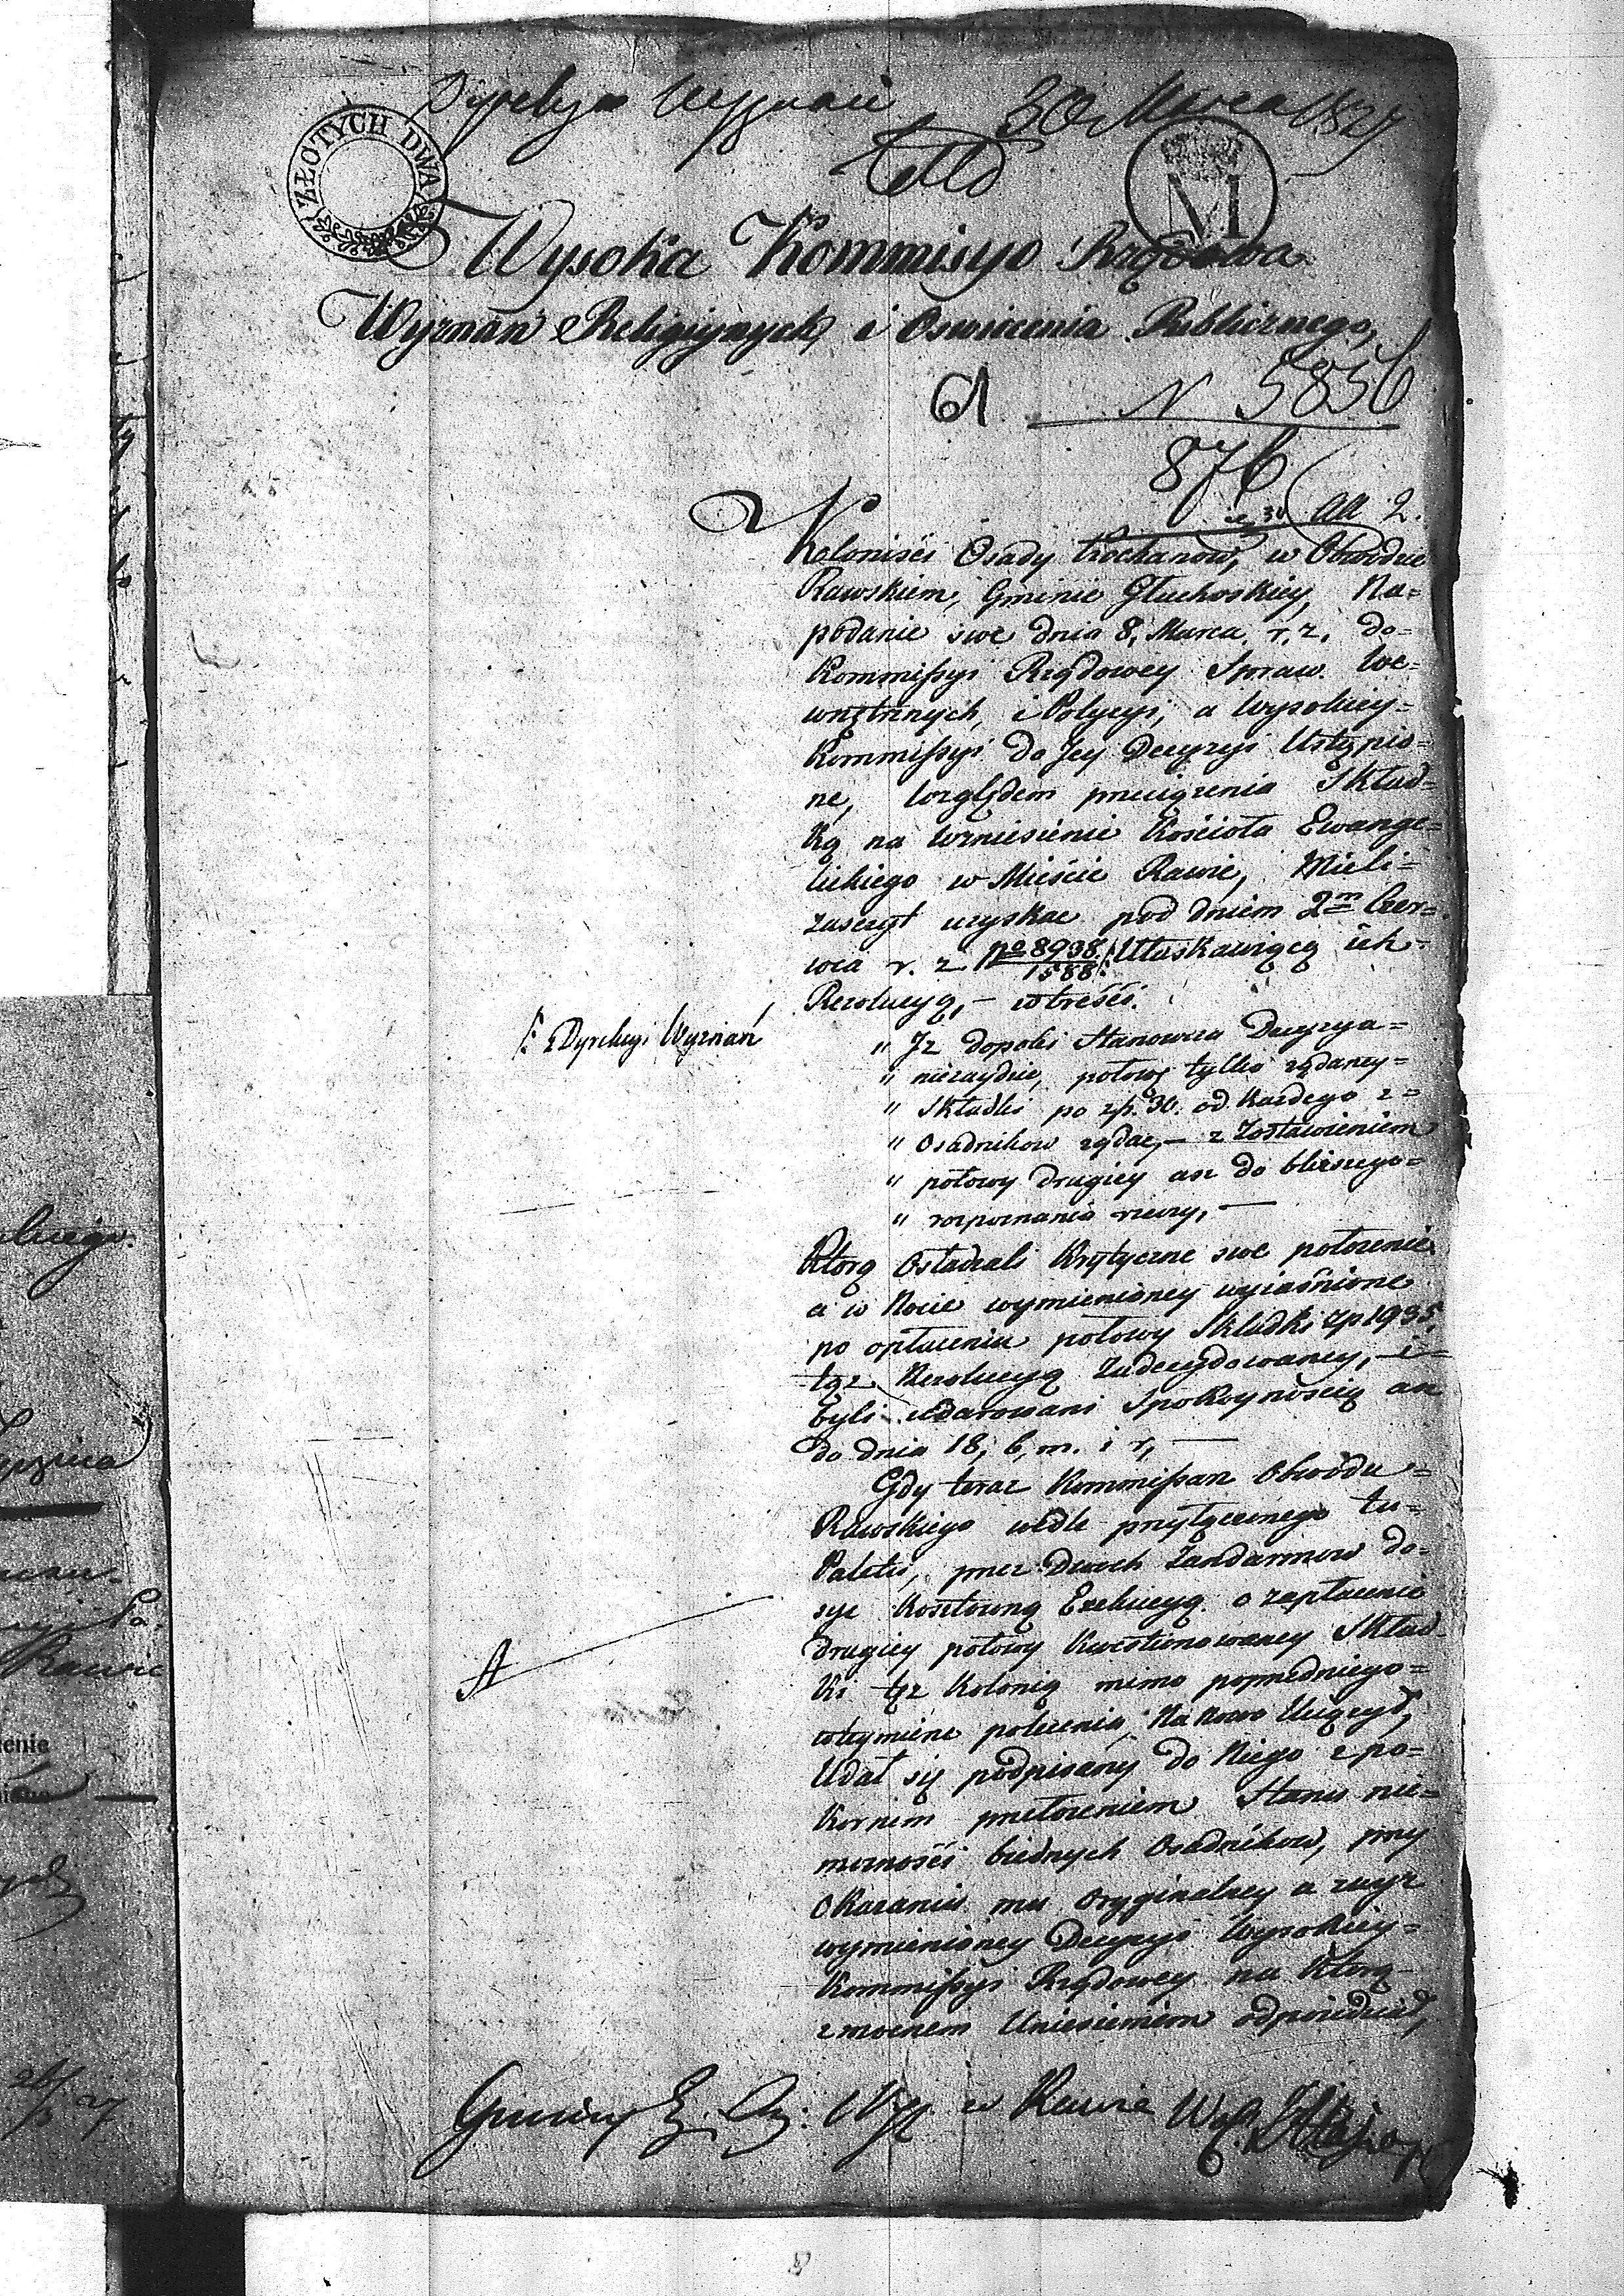 Dyrekcya Wyznań 30 Marca 1827
ZŁOTYCH DWA
M
Wysoka Kommisyo Rządowa
Wyznań Religiynych i Oswiecenia Publicznego,
61 N 5856
876
All 2.
Koloniści Osady Kochanow, w Obwodzie
Rawskiem, Gminie Głuchoskiey, Na=
podanie swe dnia 8, Marca, r, z, do=
Kommissyi Rządowey Spraw. We=
wnętrznych, i Policyi, a Wysokiey=
Kommissyi do Jey Decyzyi Ustąpio=
ne, względem przeciązenia Skład=
ką na wzniesienie Kościoła Ewange=
lickiego w Mieście Rawie, Mieli=
zaszczyt uzyskac pod dniem 2m Czer=
wca r. z. No 8938/1588 /: Ułaskawiącą ich=
Rezolucyą, – w treści.
/: z Dyrekcyi Wyznań
" Jz dopoki Stanowcza Decyzya=
" niezaydzie, połowę tylko ządaney=
" Składki po zp. 30. od każdego z=
" Osadnikow ządac, – z Zostawieniem
" połowy drugiey asz do blizszego=
" rozpoznania rzeczy, –
Ktorą Osładzali Krytyczne swe położenie
a w Nocie wymienioney wyiaśnione
po opłaceniu połowy Składki zp 1935,
tąz Rezolucyą Zadecydowaney, – i
byli udarowani Spokoynością asz
do dnia 18, b, m. i r, –
Gdy teraz Kommissarz Obwodu=
Rawskiego wedle przyłączonego tu=
Paletu, przez Dwoch Zandarmow do=
syc Kosztowną Exekucyą o zapłacenie
drugiey połowy Kwestionowaney Skład=
A
ki tęz Kolonią mimo poprzedniego=
wtymierze polecenia, Na nowo Uciązył,
Udał się podpisany do Niego z po=
kornem przełozeniem Stanu nie=
mozności biednych Osadnikow, przy
Okazaniu mu Oryginalney a zwyz
wymienioney Decyzyi Wysokiey=
Kommissyi Rządowey na którą
z mocnem Uniesieniem odpowiedział,
w Rawie